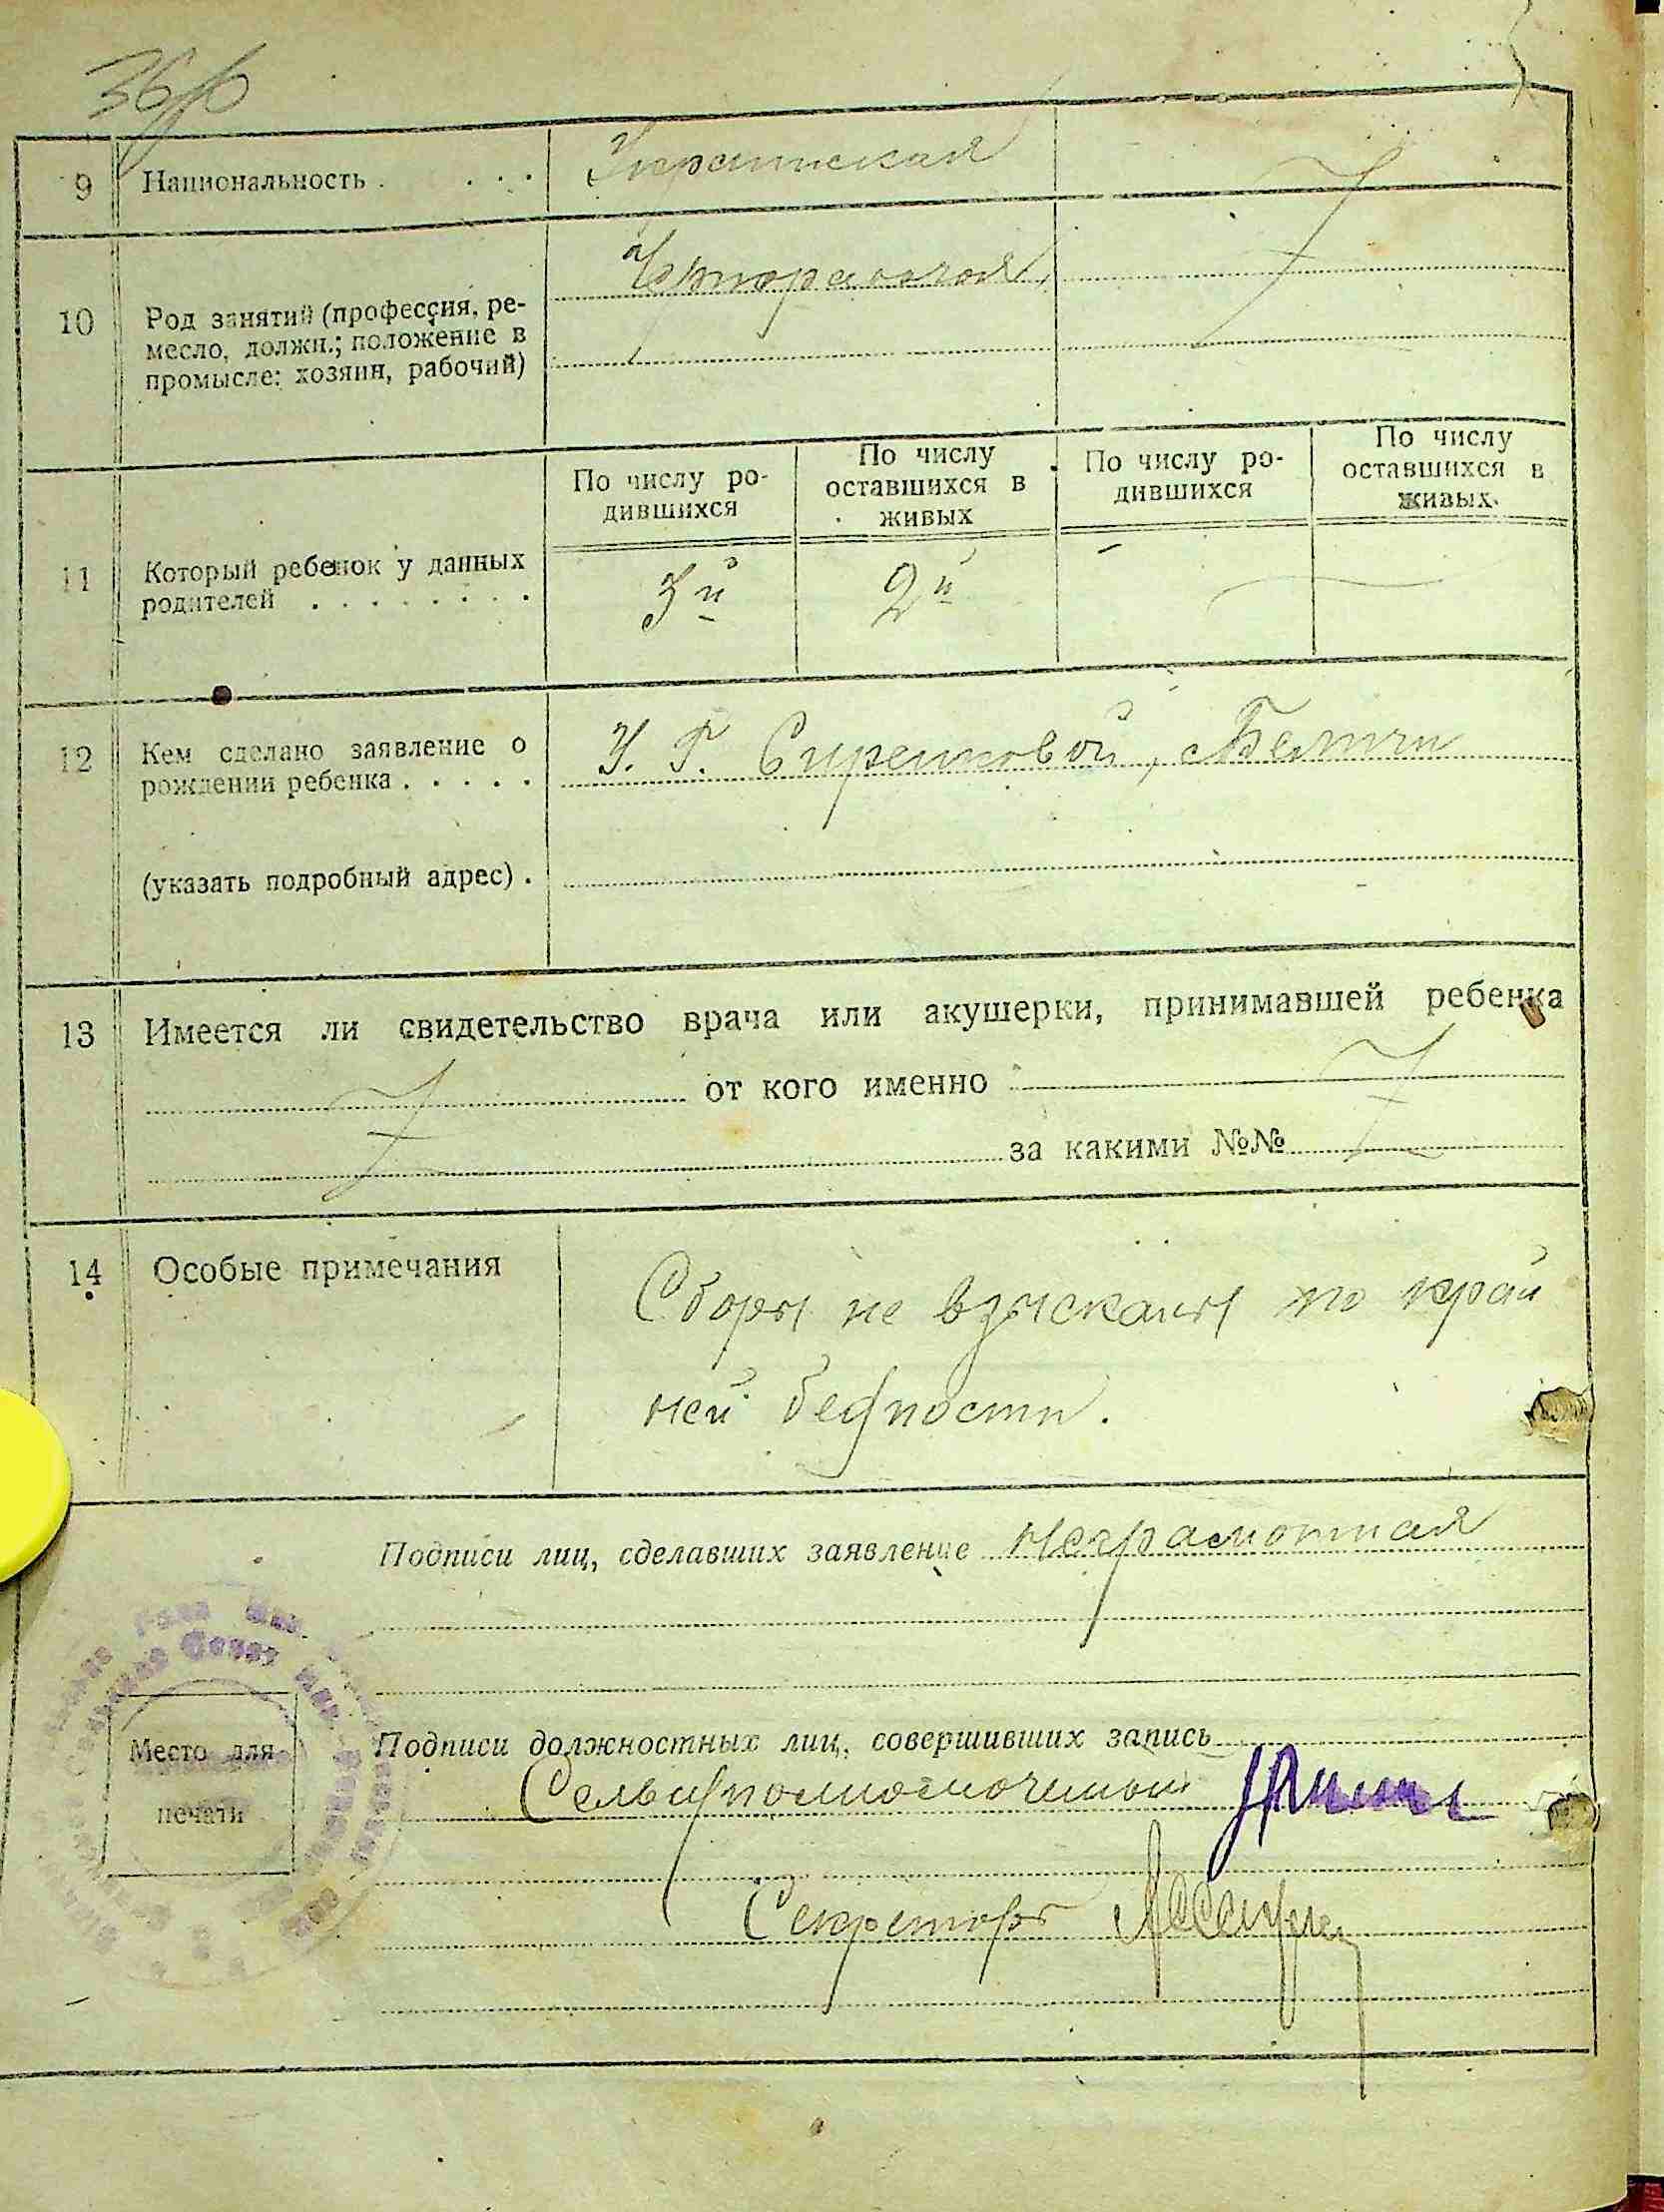 9 Национальность . . . .
10 Род занятий (профессия, ре-
месло, должн.; положение в
промысле: хозяин, рабочий)
Чернорабочая
По числу ро-
дившихся
По числу
оставшихся в
живых
По числу ро-
дившихся
По числу
оставшихся в
живых
11 Который ребенок у данных
родителей . . . . . . . .
3й 2й
12 Кем сделано заявление о
рождении ребенка . . . . .
У. Г.
(указать подробный адрес) .
13 Имеется ли свидетельство врача или акушерки, принимавшей ребенка
от кого именно
за какими №№
14 Особые примечания
Сборы не взысканы по край
ней бедности.
Подписи лиц, сделавших заявление неграмотная
Место для
печати
Подписи должностных лиц, совершивших запись
Сельуполномоченный
Секретарь